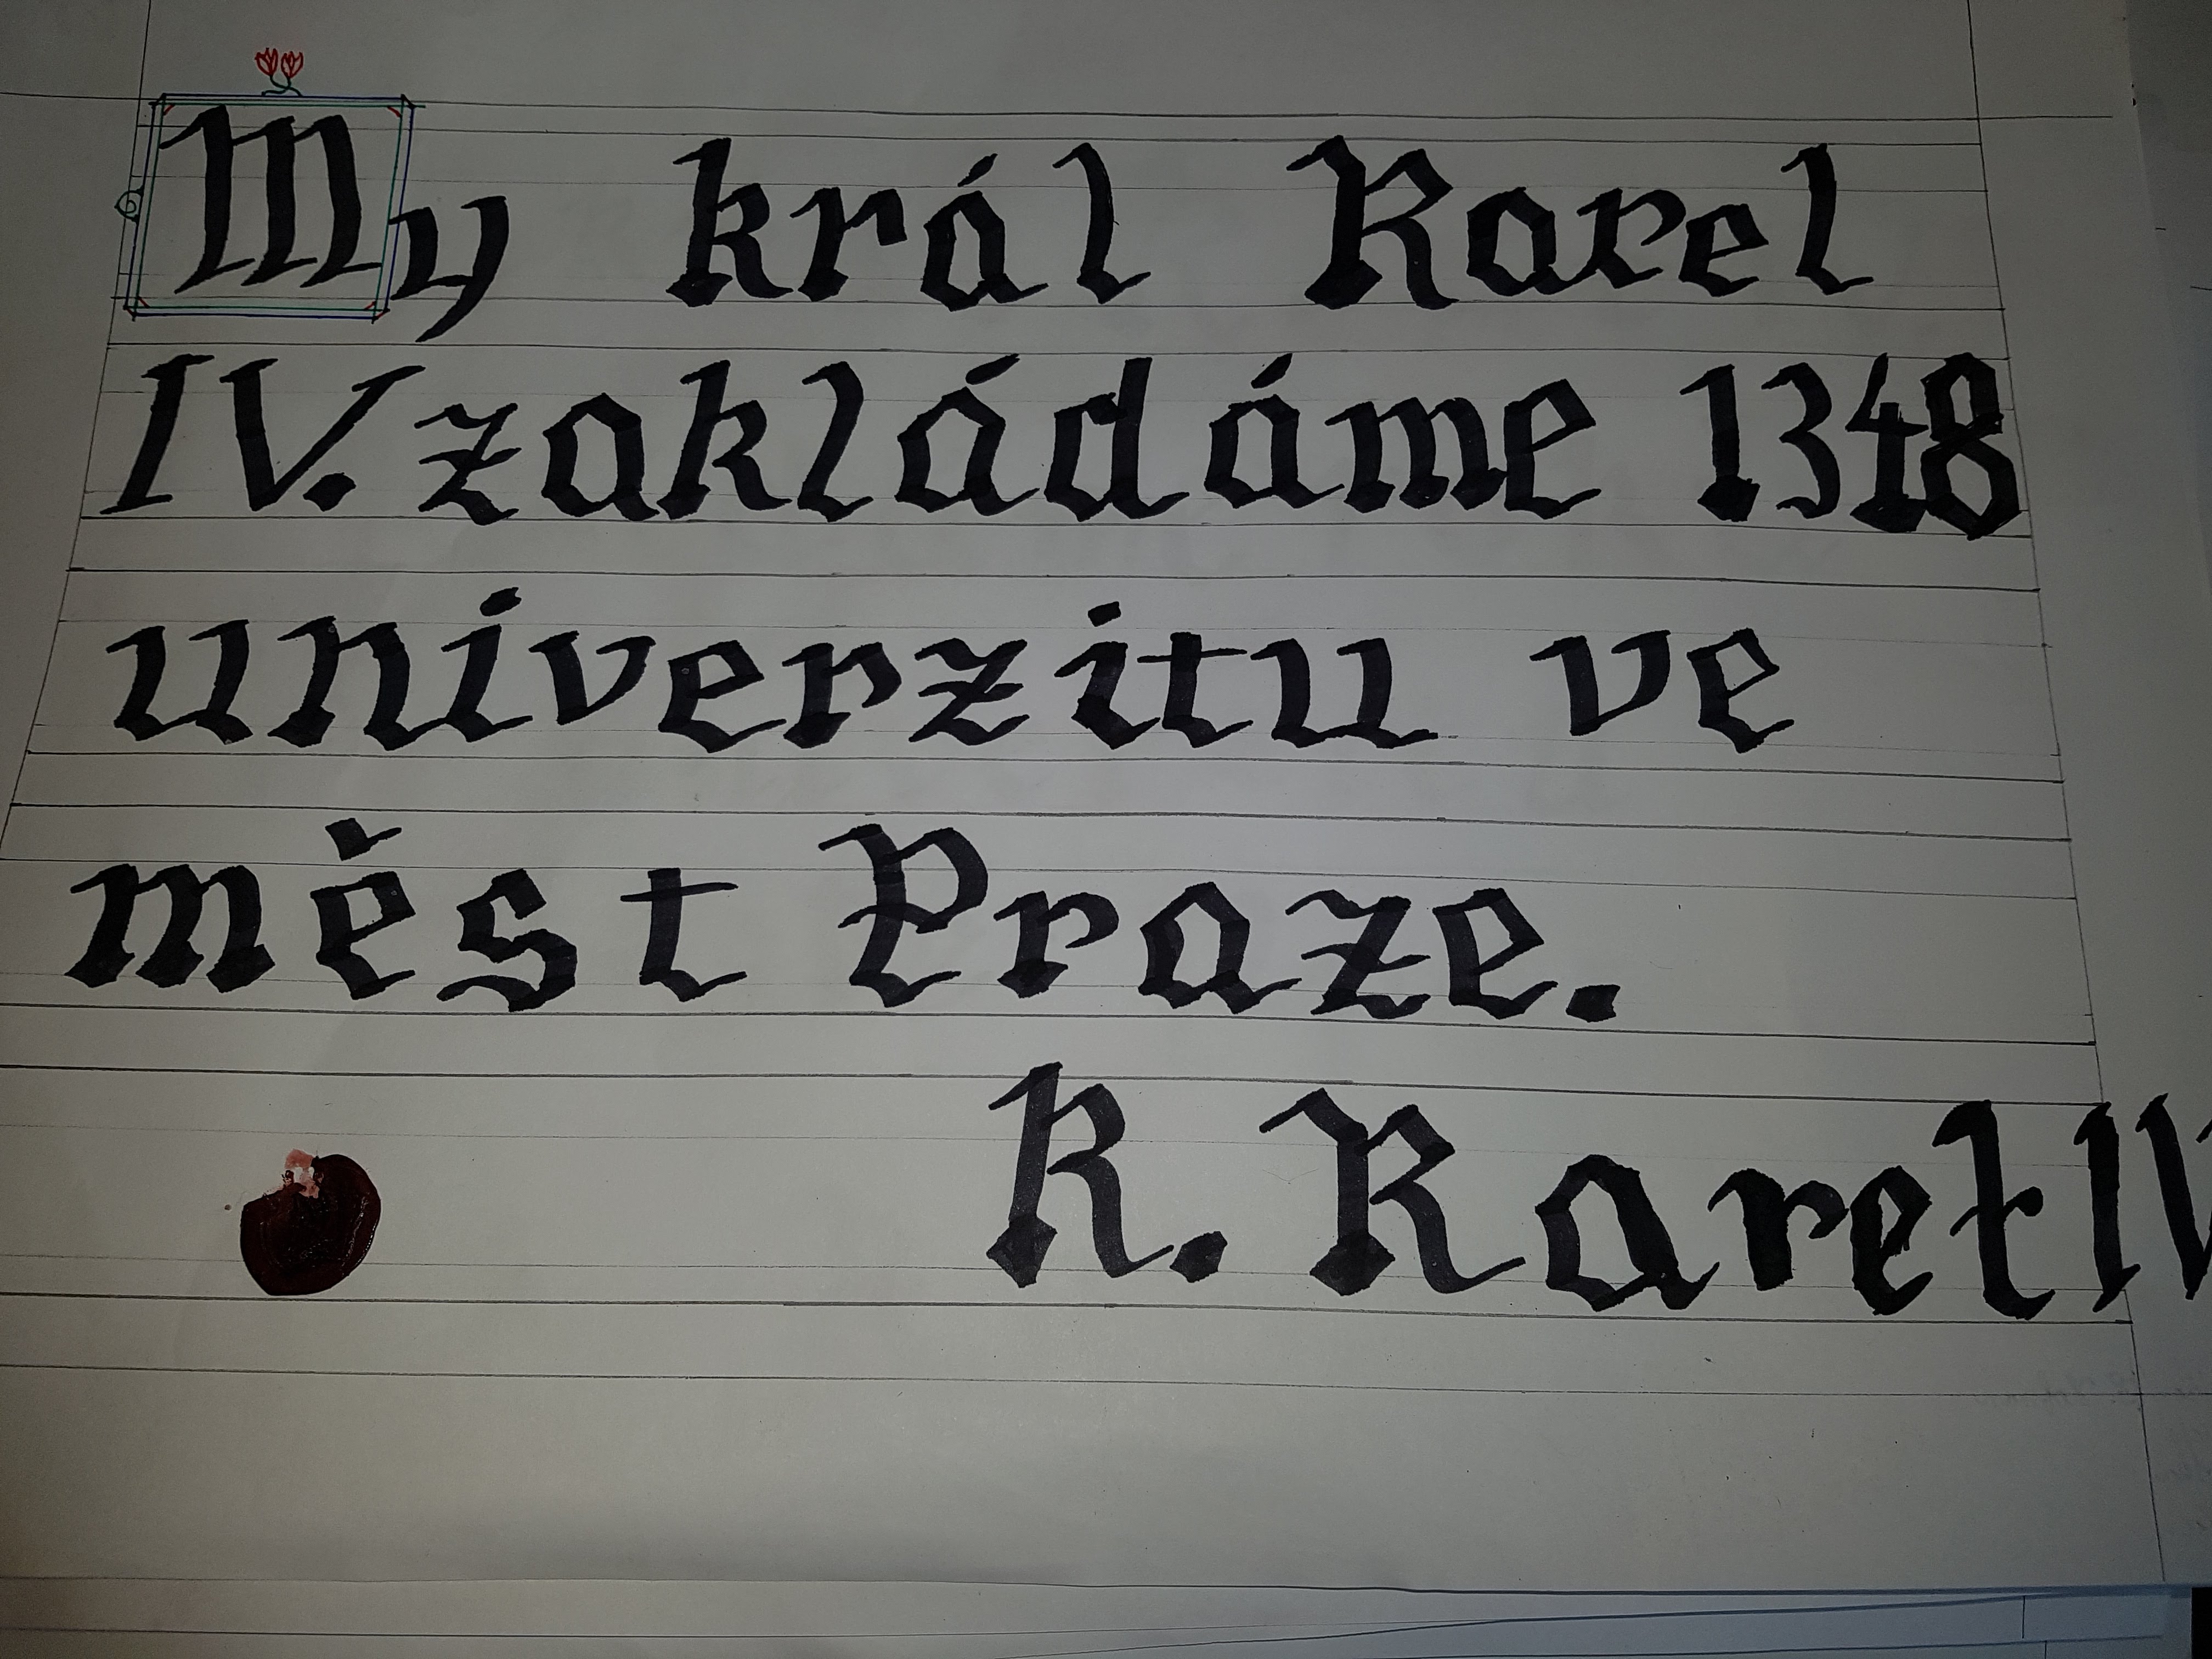 My král Karel
IV. zakládáme 1348
univerzitu ve
měst Praze.
K. Karel IV